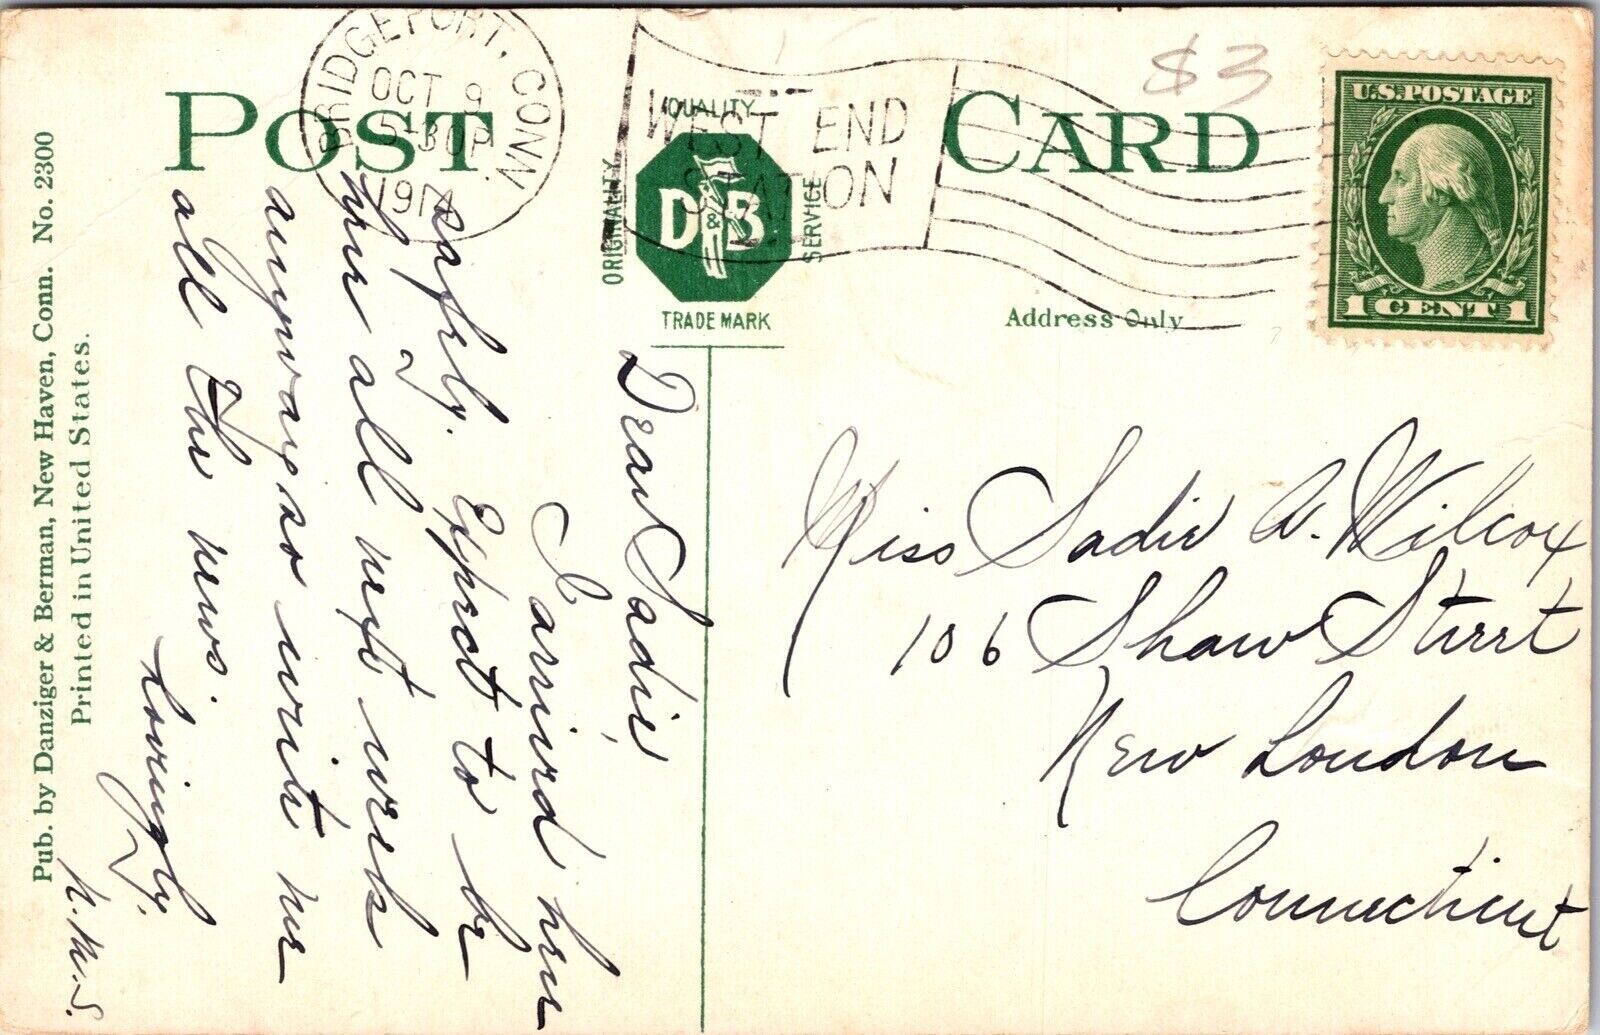 Pub. by Danziger & Berman, New Haven, Conn. No. 2300
Printed in United States.
POST CARD
BRIDGEPORT, CONN.
OCT 9
5-30P
1914
WEST END
STATION
QUALITY
ORIGINALITY
SERVICE
D & B
TRADE MARK
Address Only
$3
U.S. POSTAGE
1 CENT 1
Dear Sadie,
I arrived here
safely. Expect to be
here all next week
anyway so write me
all the news.
Lovingly,
N. M. S.
Miss Sadie A. Wilcox
106 Shaw Street
New London
Connecticut